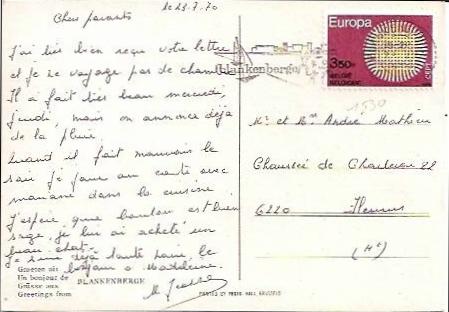 le 23.7.70
Chers parents
J'ai très bien reçu votre lettre
et je ne voyage pas de
Il a fait très beau mercredi,
jeudi, mais on annonce déjà
de la pluie.
Quand il fait mauvais le
soir je joue aux cartes avec
dans la cuisine
J'espère que est bien
sage, je lui ai acheté un
beau chat.
Je suis déjà toute noire, le
bonjour à Madeleine.
Groeten uit
Un bonjour de
Grüsse aus
Greetings from
BLANKENBERGE
PHOTO HALL BRUXELLES
blankenberge
Europa
3,50F
BELGIË
BELGIQUE
CEPT
1530
Mr et Mme André Mathieu
Chaussée de Charleroi
6220 Fleurus
(Ht)